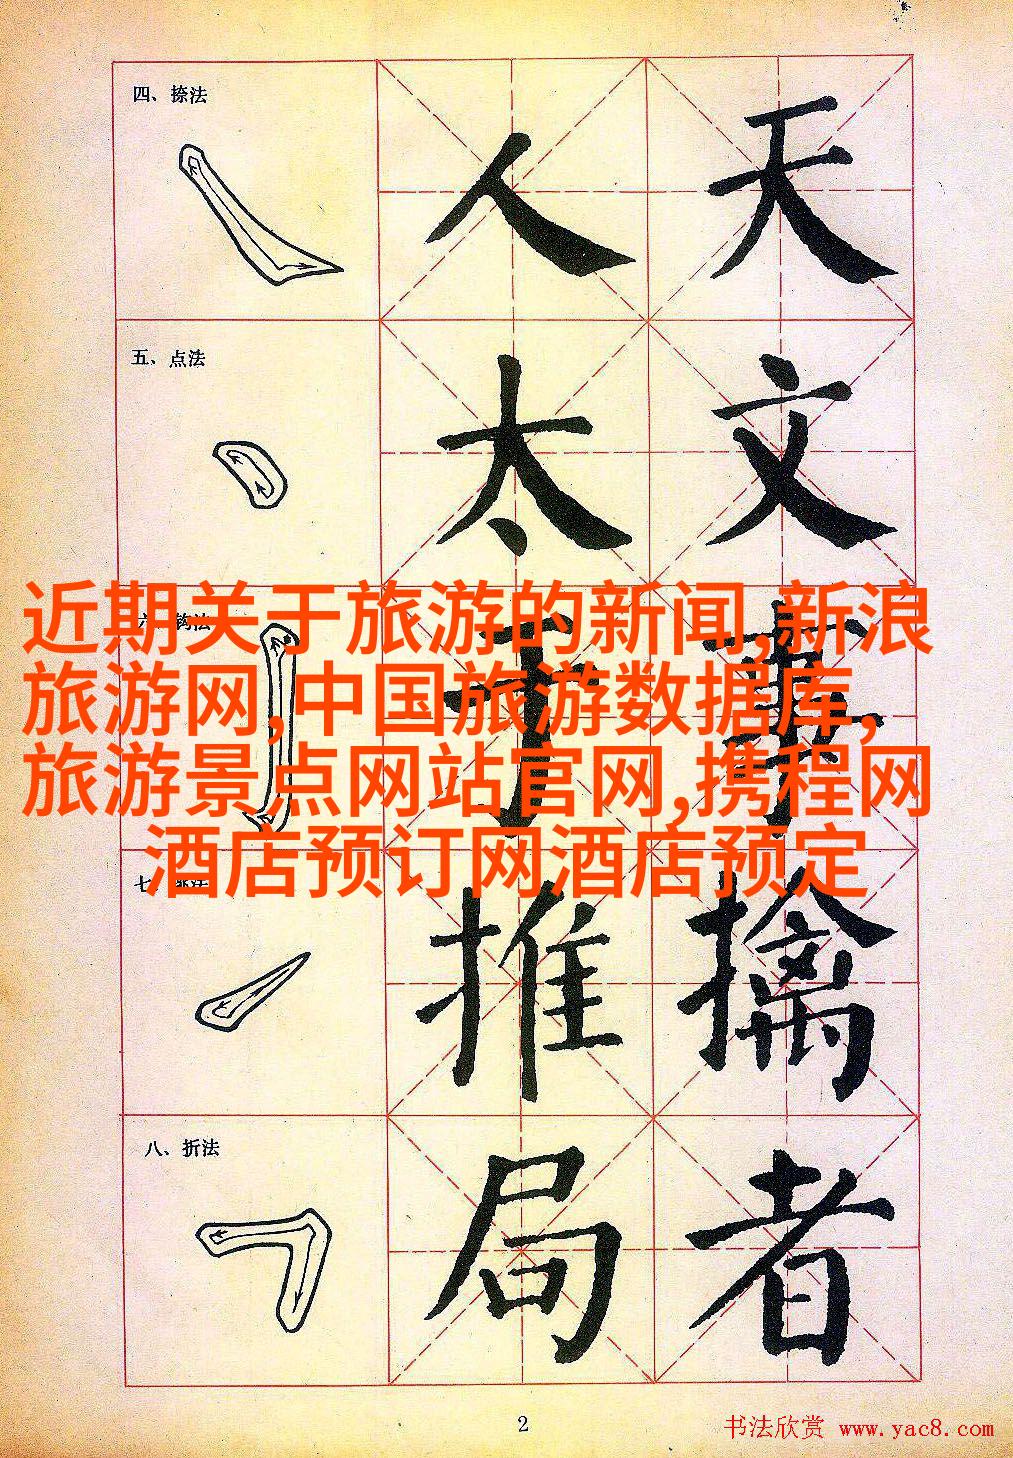 四、捺法
人 天
五、点法
太 文
近期关于旅游的新闻,新浪
旅游网,中国旅游数据库,
旅游景点网站官网,携程网
酒店预订网酒店预定
推 擒
八、折法
局 者
2
书法欣赏 www.yac8.com